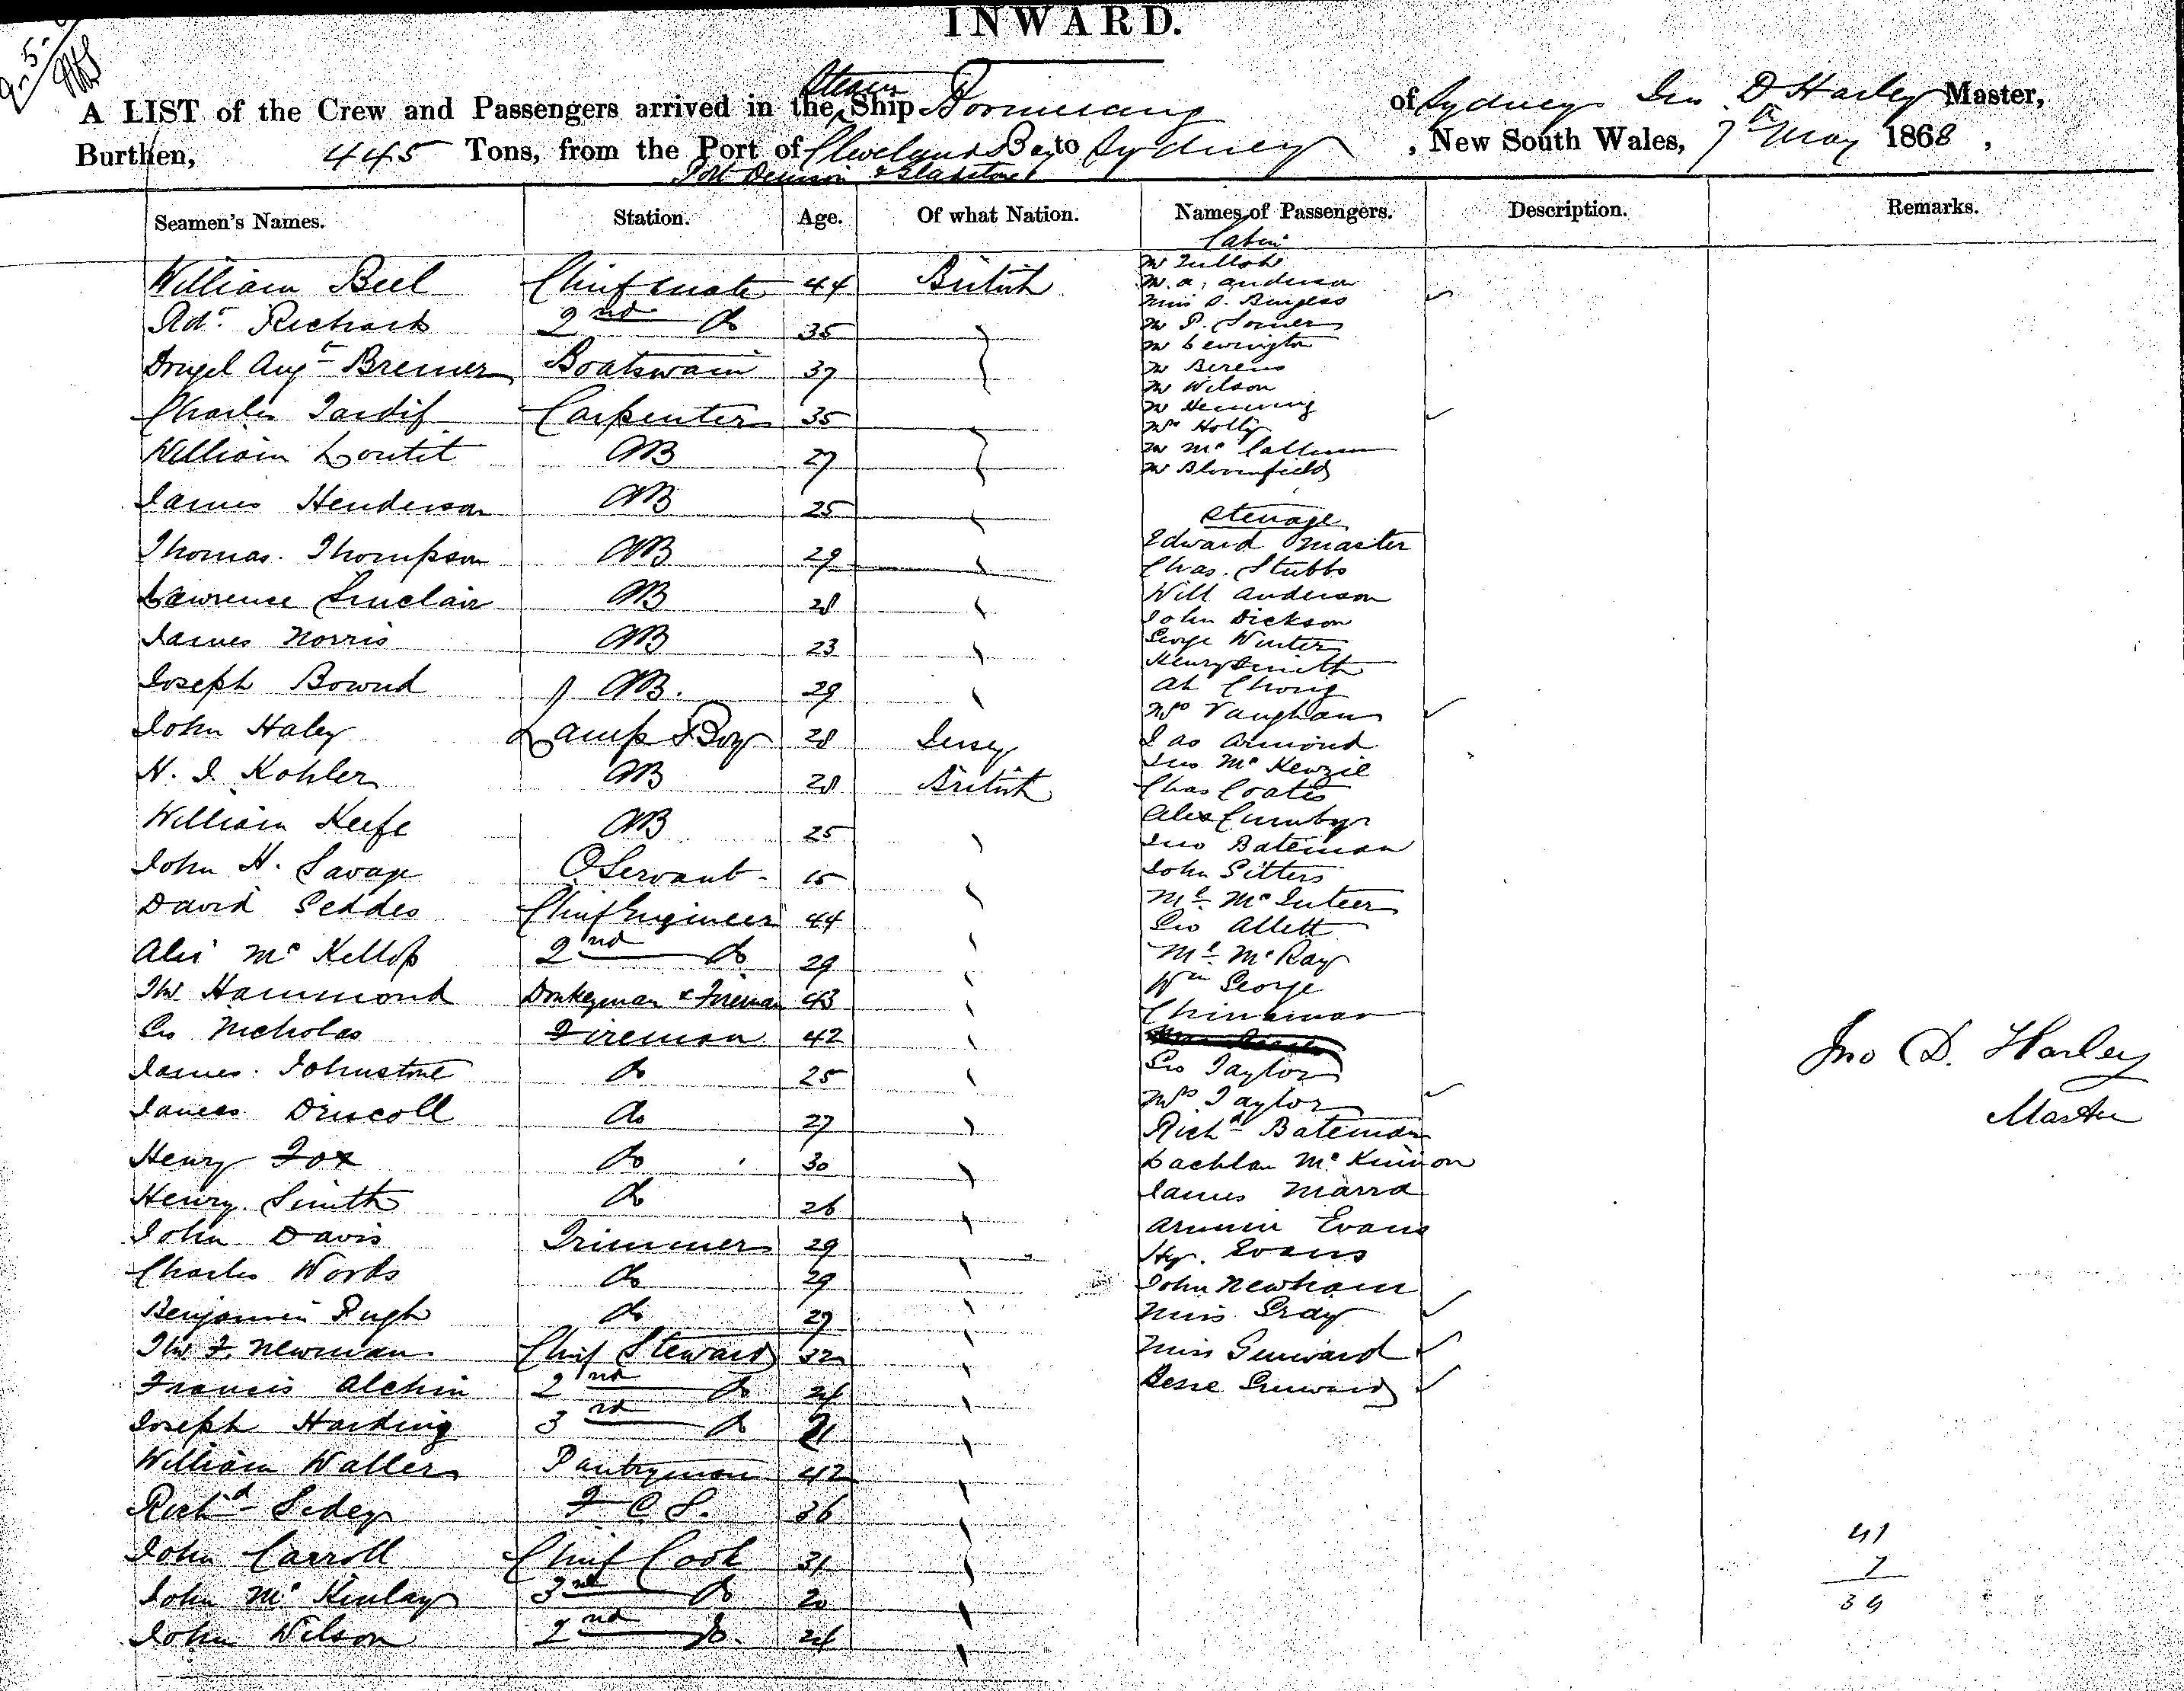 INWARD.
9.5.
A LIST of the Crew and Passengers arrived in the Steam Ship Boomerang of Sydney Jno D Harley Master,
Burthen, 445 Tons, from the Port of Cleveland Bay to Sydney, New South Wales, 7th May 1868,
Port Denison & Gladstone
Seamen's Names. Station. Age. Of what Nation. Names of Passengers. Description. Remarks.
William Beel Chief mate 44 British
Rdr. Richards 2nd do 35
Augt Bremer Boatswain 37
Charles Tardif Carpenter 35
William Loutit AB 27
James Henderson AB 25
Thomas Thompson AB 29
Lawrence Sinclair AB 28
James Norris AB 23
Joseph Bownd AB. 29
John Haley Lamp & Boy 28 Jersey
N. J. Kohler AB 28 British
William Keefe AB 25
John H. Savage O Servant 15
David Geddes Chief Engineer 44
Alex McKellop 2nd do 29
Thos Hammond Donkeyman & Fireman 43
Geo Nicholas Fireman 42
James Johnstone do 25
James Driscoll do 27
Henry Fox do 30
Henry Smith do 26
John Davis Trimmer 29
Charles Words do 29
Benjamin Pugh do 29
Thos F. Newman Chief Steward 32
Francis Alchin 2nd do 24
Joseph Harding 3rd do 21
William Waller Pantryman 42
Richd Sidey F C S. 36
John Carroll Chief Cook 31
John McKinlay 3rd do 20
John Wilson 2nd do. 24
Cabin
Mr Tulloh
Mr A. Anderson
Miss S. Burgess
Mr P. Somer
Mr Lewington
Mr Berens
Mr Wilson
Mr Hemming
Mrs Holly
Mr McCallum
Mr Bloomfield
Steerage
Edward Master
Chas. Stubbs
Will Anderson
John Dickson
George Winter
Henry Smith
Ah Chong
Mrs Vaughan
Jas Armond
Jno McKenzie
Chas Coates
Alex Cumby
Jno Bateman
John Sitters
Ml McInteer
Geo Allett
Ml McRay
Wm George
Chinaman
Geo Taylor
Mrs Taylor
Richd Bateman
Lachlan McKinnon
James Marra
Armin Evans
Hy. Evans
John Newham
Miss Gray
Miss Gunward
Besse Gunward
Jno D. Harley
Master
41
7
34